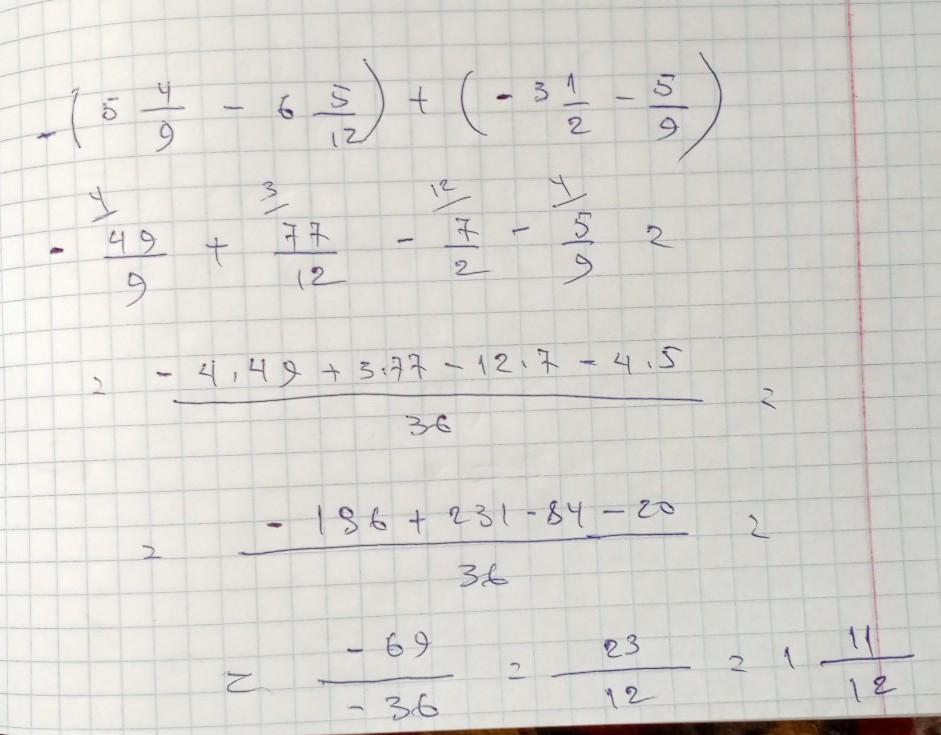 -(5 4/9 - 6 5/12) + (-3 1/2 - 5/9)
4 3 12 4
- 49/9 + 77/12 - 7/2 - 5/9 =
= (- 4.49 + 3.77 - 12.7 - 4.5)/36 =
= (- 196 + 231 - 84 - 20)/36 =
= -69/-36 = 23/12 = 1 11/12